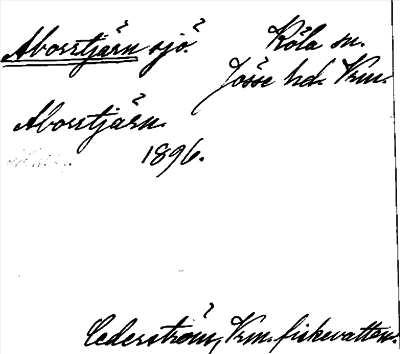 Aborrtjärn sjö. Köla sn.
Jösse hd. Vrm.
Aborrtjärn.
1896.
Cederström, Vrm. fiskevatten.